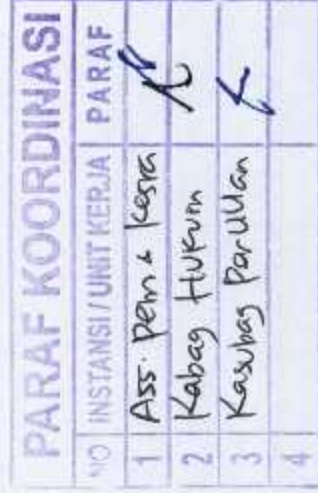 PARAF KOORDINASI
NO INSTANSI / UNIT KERJA PARAF
1 Ass. Pem & Kesra
2 Kabag Hukum
3 Kasubag PerUUan
4